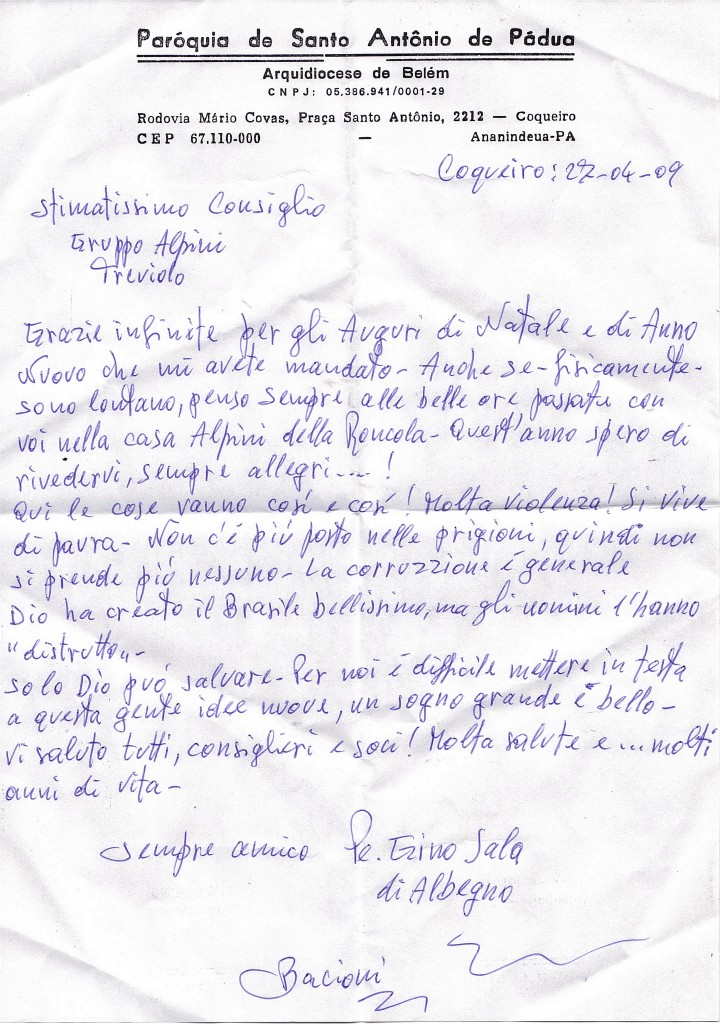 Paróquia de Santo Antônio de Pádua
Arquidiocese de Belém
CNPJ: 05.386.941/0001-29
Rodovia Mário Covas, Praça Santo Antônio, 2212 — Coqueiro
CEP 67.110-000 — Ananindeua-PA
Coqueiro: 27-04-09
Stimatissimo Consiglio
Gruppo Alpini
Treviolo
Grazie infinite per gli Auguri di Natale e di Anno
Nuovo che mi avete mandato - Anche se - fisicamente -
sono lontano, penso sempre alle belle ore passate con
voi nella casa Alpini della Roncola - Quest'anno spero di
rivedervi, sempre allegri....!
Qui le cose vanno cosí e cosí! Molta violenza! Si vive
di paura - Non c'é piú posto nelle prigioni, quindi non
si prende piú nessuno - La corruzzione é generale
Dio ha creato il Brasile bellissimo, ma gli uomini l'hanno
"distrutto" -
Solo Dio puó salvare - Per noi é difficile mettere in testa
a questa gente idee nuove, un sogno grande é bello -
Vi saluto tutti, consiglieri e soci! Molta salute e ... molti
anni di vita -
Sempre amico Pe. Gino Sala
di Albegno
Bacioni